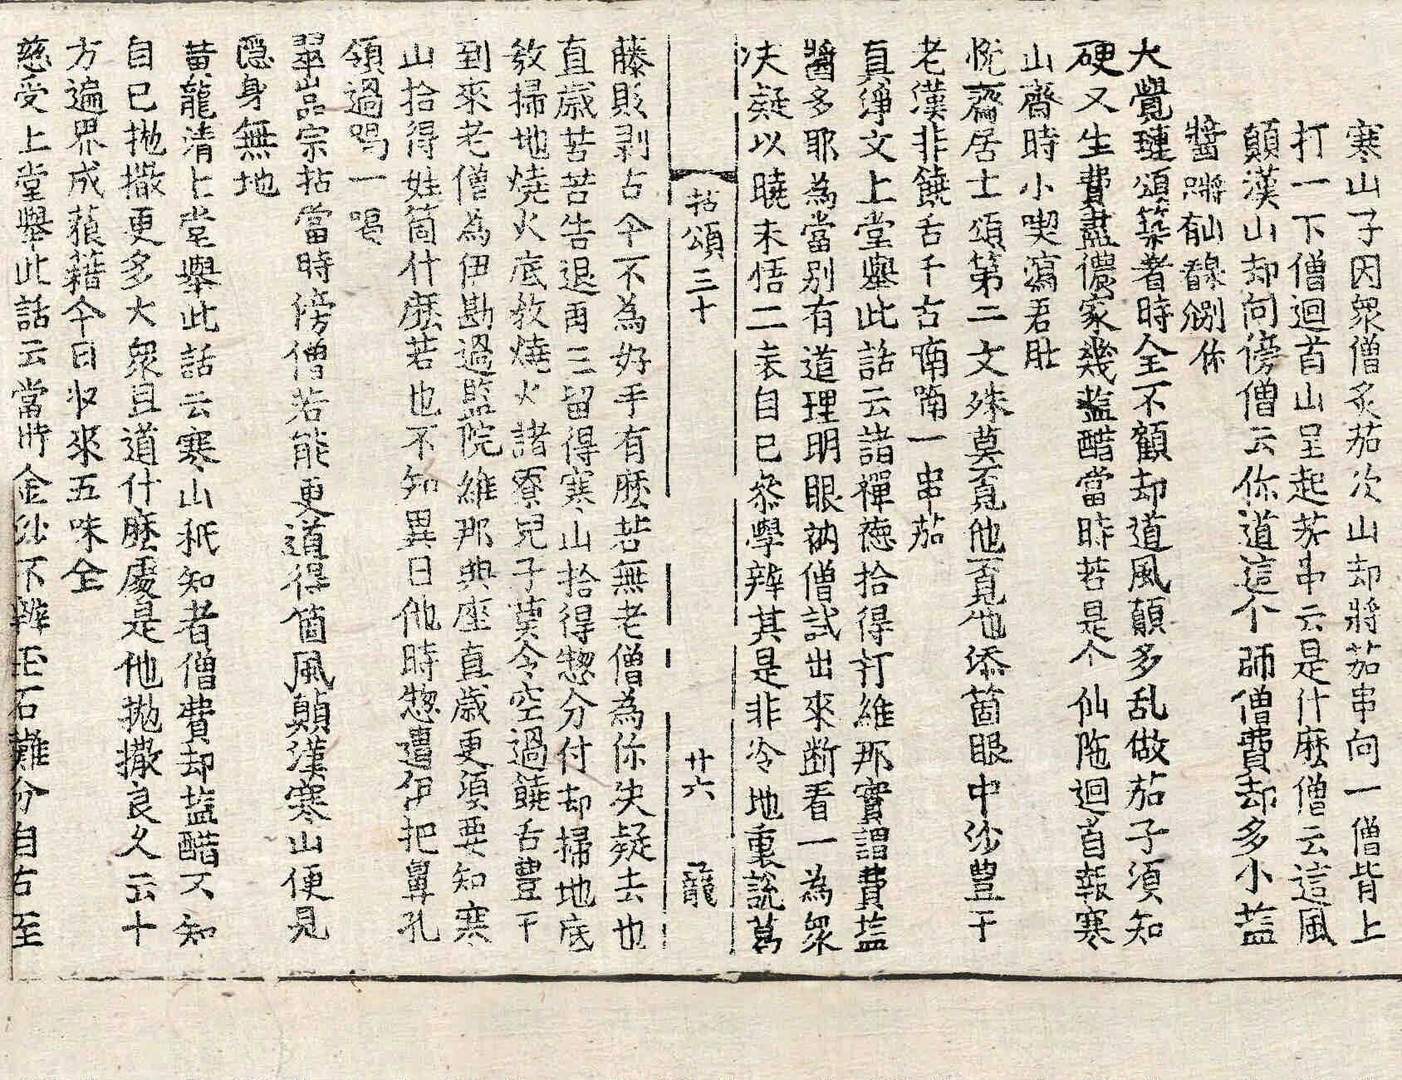 寒山子因衆僧炙茄次山却將茄串向一僧背上
打一下僧迴首山呈起茄串云是什麽僧云這風
顛漢山却向傍僧云你道這个師僧費却多小塩
醬
大覺璉頌築着時全不顧却道風顛多乱做茄子須知
硬又生費盡儂家幾塩醋當時若是个仙陁迴首報寒
山齋時小喫瀉君肚
悅齋居士頌第二文殊莫覓他覓他添箇眼中沙豊干
老漢非饒舌千古喃喃一串茄
真淨文上堂擧此話云諸禪德拾得打維那實謂費塩
醬多耶為當別有道理明眼衲僧試出來断看一為衆
决疑以曉未悟二表自已叅學辨其是非冷地重說葛
拈頌三十 廿六 龍
藤貶剥古今不為好手有麽若無老僧為你决疑去也
直歲苦苦告退再三留得寒山拾得惣分付却掃地底
教掃地燒火底教燒火諸寮兒子莫令空過饒舌豊干
到來老僧為伊勘過監院維那典座直歲更須要知寒
山拾得姓箇什麽若也不知異日他時惣遭伊把鼻孔
領過喝一喝
翠嵓宗拈當時傍僧若能更道得箇風顛漢寒山便見
隱身無地
黄龍清上堂擧此話云寒山秖知者僧費却塩醋不知
自已抛撒更多大衆且道什麽處是他抛撒良久云十
方遍界成䕌藉今日收來五味全
慈受上堂擧此話云當時金沙不辨玉石難分自古至